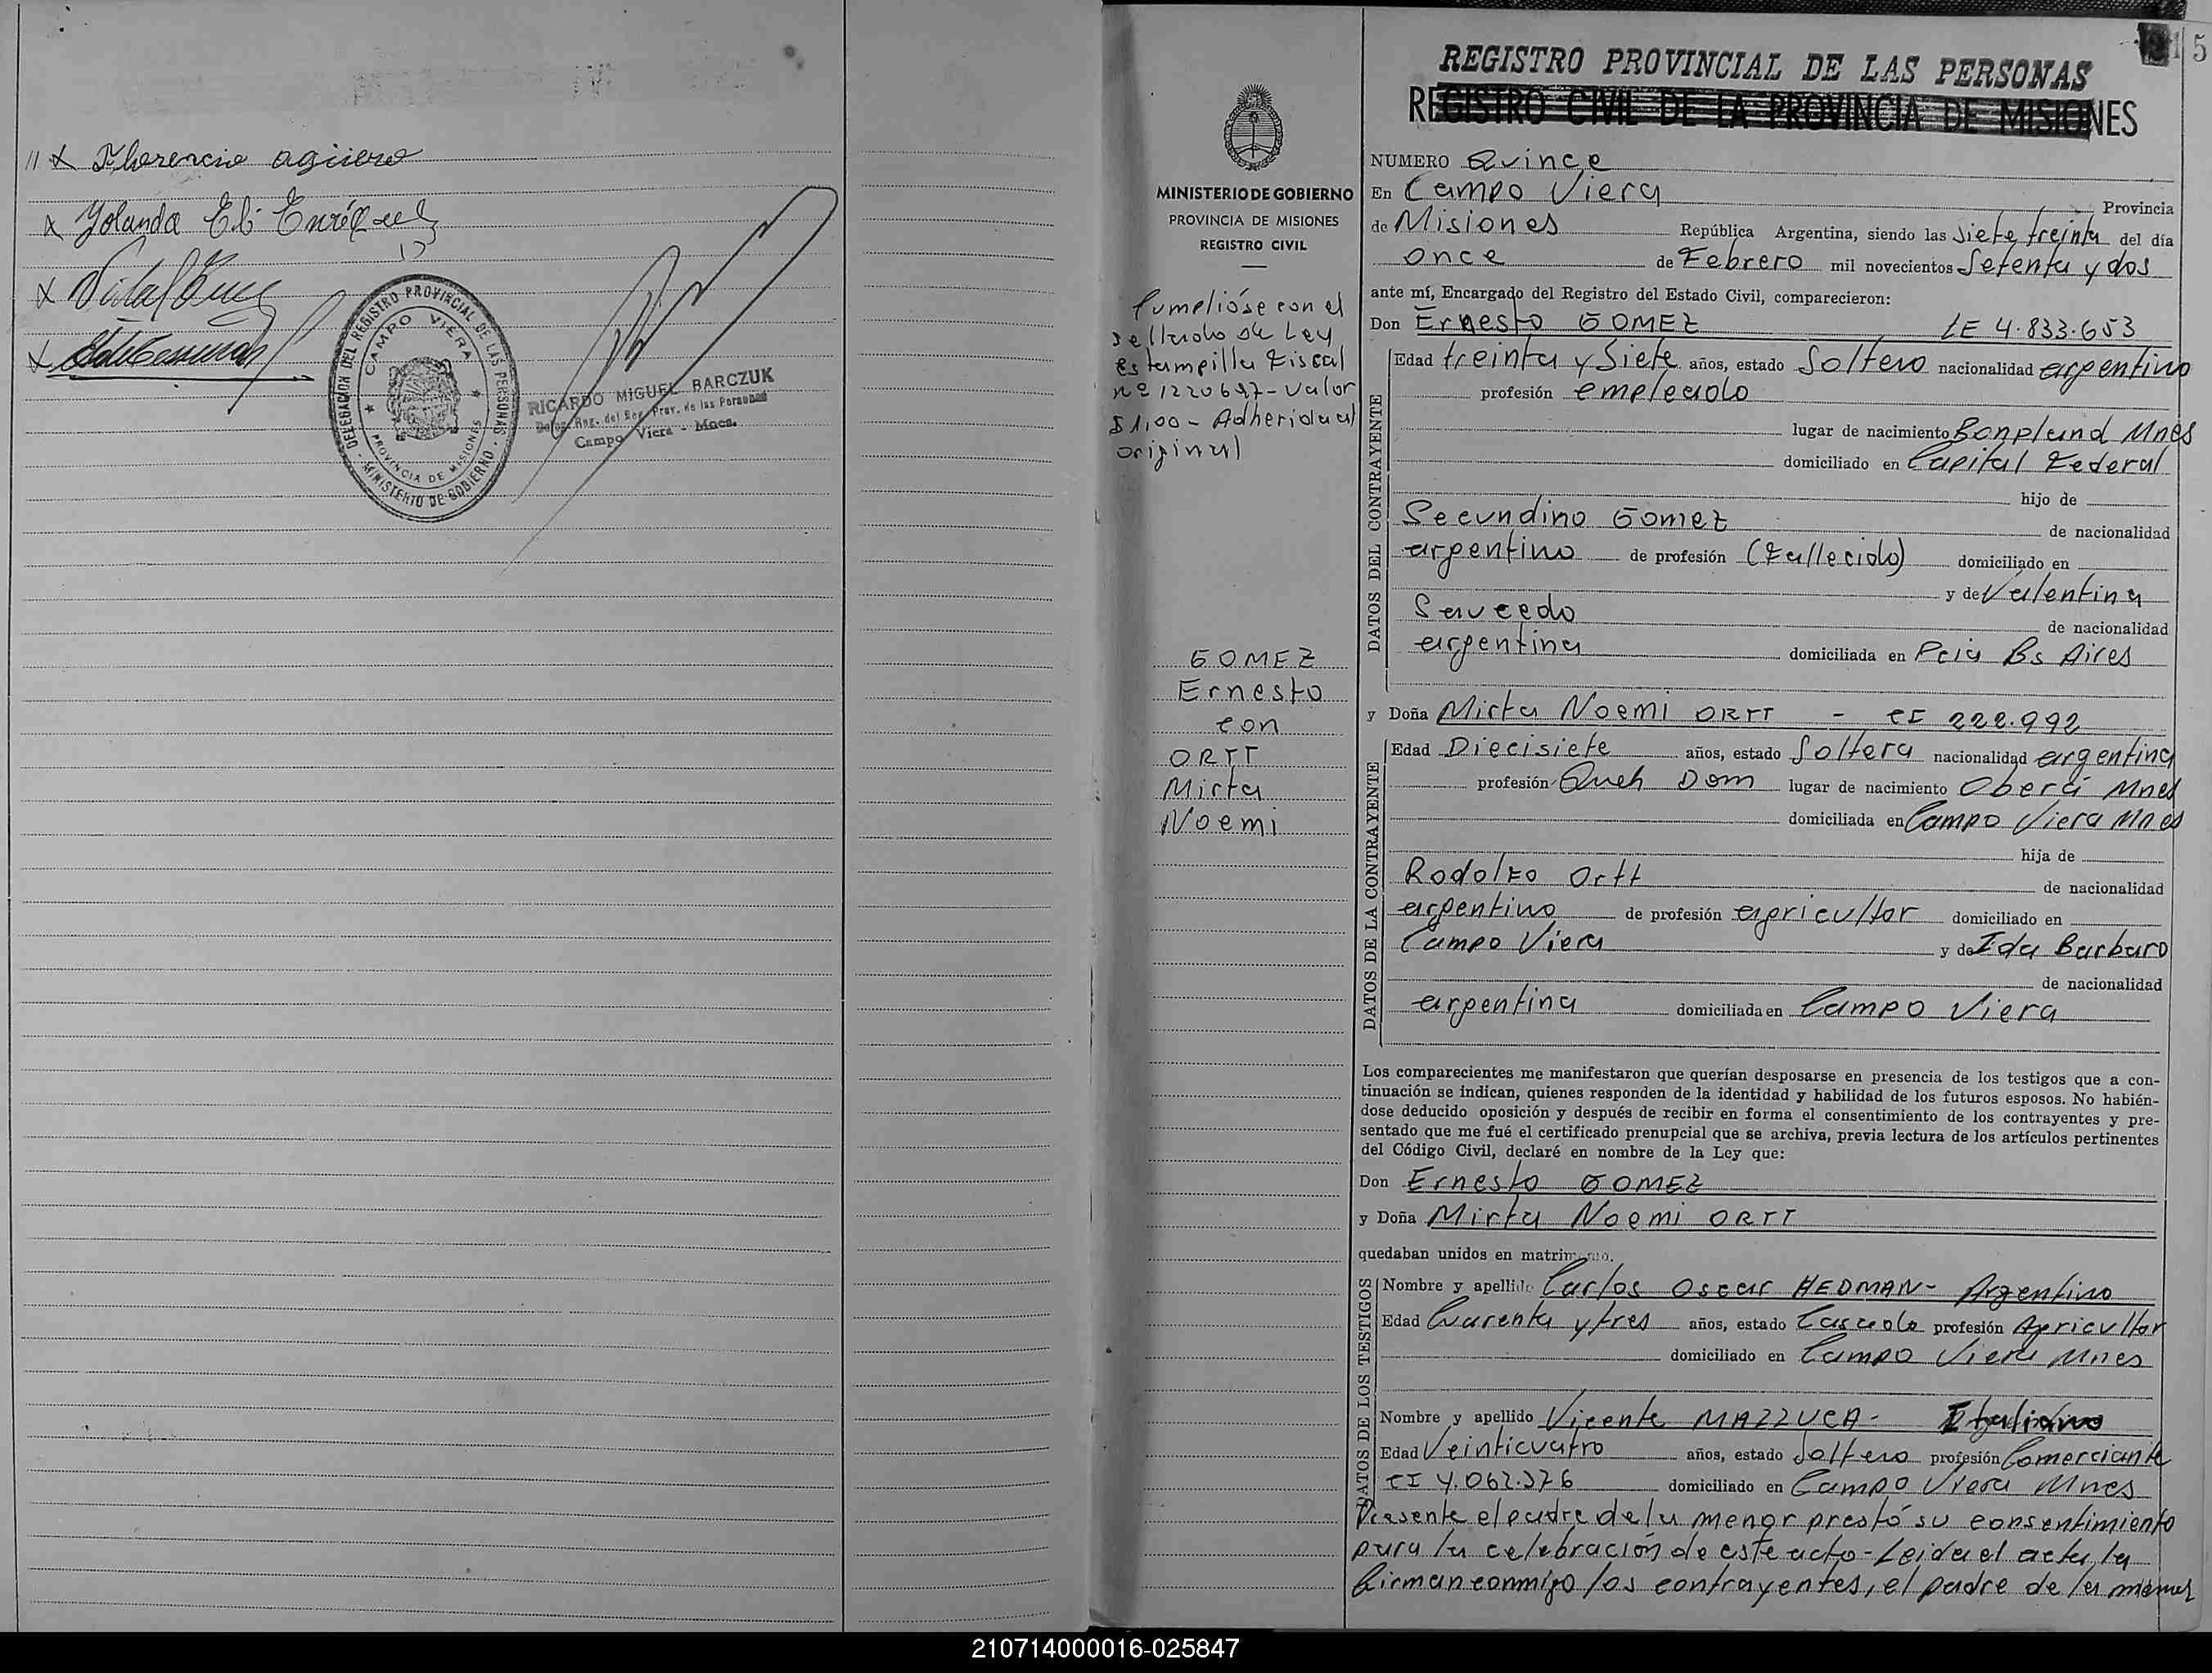 // x Florencio aguero
x Yolanda Eli Enriquez
x
x
DELEGACION DEL REGISTRO PROVINCIAL DE LAS PERSONAS
MINISTERIO DE GOBIERNO
CAMPO VIERA
PROVINCIA DE MISIONES
RICARDO MIGUEL BARCZUK
Deleg. Reg. del Reg. Prov. de las Personas
Campo Viera - Mnes.
5
REGISTRO PROVINCIAL DE LAS PERSONAS
REGISTRO CIVIL DE LA PROVINCIA DE MISIONES
MINISTERIO DE GOBIERNO
PROVINCIA DE MISIONES
REGISTRO CIVIL
Cumplióse con el
sellado de Ley
Estampilla Fiscal
nº 1220697 - Valor
$ 1,00 - Adherida al
original
GOMEZ
Ernesto
con
ORTT
Mirta
Noemi
NUMERO Quince
En Campo Viera
Provincia
de Misiones República Argentina, siendo las siete treinta del día
once de Febrero mil novecientos Setenta y dos
ante mí, Encargado del Registro del Estado Civil, comparecieron:
Don Ernesto GOMEZ LE 4.833.653
DATOS DEL CONTRAYENTE
Edad treinta y Siete años, estado Soltero nacionalidad argentino
profesión empleado
lugar de nacimiento Bonpland Mnes
domiciliado en Capital Federal
hijo de
Secundino Gomez de nacionalidad
argentino de profesión (Fallecido) domiciliado en
y de Valentina
Saucedo de nacionalidad
argentina domiciliada en Pcia Bs Aires
y Doña Mirta Noemi ORTT - CI 222.992
DATOS DE LA CONTRAYENTE
Edad Diecisiete años, estado Soltera nacionalidad argentina
profesión Queh Dom lugar de nacimiento Oberá Mnes
domiciliada en Campo Viera Mnes
hija de
Rodolfo Ortt de nacionalidad
argentino de profesión agricultor domiciliado en
Campo Viera y de Ida Barbaro
de nacionalidad
argentina domiciliada en Campo Viera
Los comparecientes me manifestaron que querían desposarse en presencia de los testigos que a con-
tinuación se indican, quienes responden de la identidad y habilidad de los futuros esposos. No habién-
dose deducido oposición y después de recibir en forma el consentimiento de los contrayentes y pre-
sentado que me fué el certificado prenupcial que se archiva, previa lectura de los artículos pertinentes
del Código Civil, declaré en nombre de la Ley que:
Don Ernesto GOMEZ
y Doña Mirta Noemi ORTT
quedaban unidos en matrimonio.
DATOS DE LOS TESTIGOS
Nombre y apellido Carlos Oscar HEDMAN - Argentino
Edad Cuarenta y tres años, estado Casado profesión Agricultor
domiciliado en Campo Viera Mnes
Nombre y apellido Vicente MAZZUCA - Italiano
Edad Veinticuatro años, estado Soltero profesión Comerciante
CI 4.062.376 domiciliado en Campo Viera Mnes
Presente el padre de la menor prestó su consentimiento
para la celebración de este acto - Leida el acta, la
firman conmigo los contrayentes, el padre de la menor
210714000016-025847